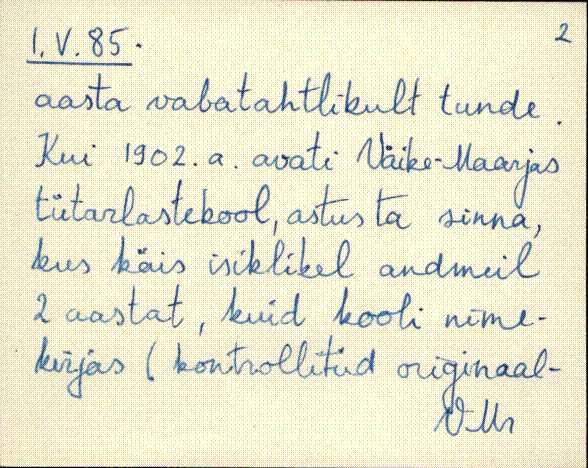 1.V.85. 2
aasta vabatahtlikult tunde.
Kui 1902.a. avati Väike-Maarjas
tütarlastekool, astus ta sinna,
kus käis isiklikel andmeil
2 aastat, kuid kooli nime-
kirjas (kontrollitud originaal-
V.Mr